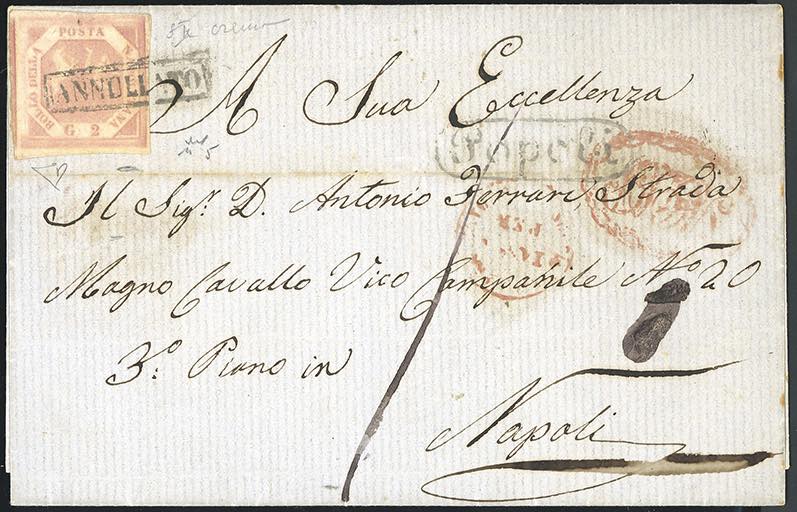 POSTA
BOLLO DELLA
G 2
ANNULLATO
A Sua Eccellenza
Popoli
Il Sigr. D. Antonio Ferrari, Strada
Magno Cavallo Vico Campanile No 20
3.o Piano in
Napoli